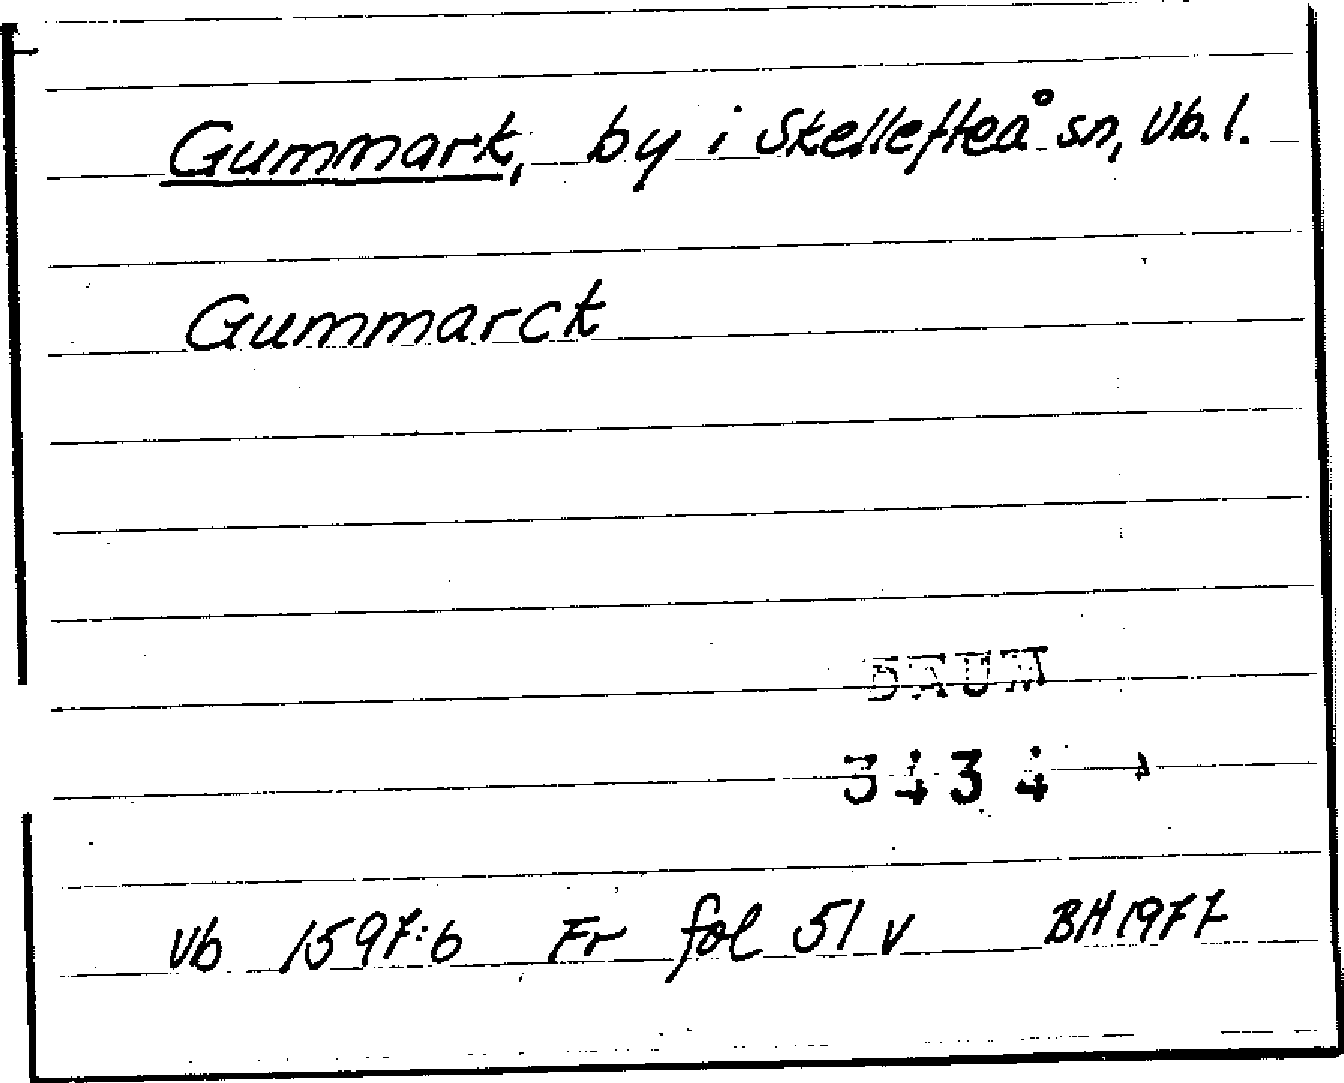 Gummark, by i Skellefteå sn, Vb. l.
Gummarck
DAUM
3434
Vb 1597:6 Fr fol 51 v BH 1977